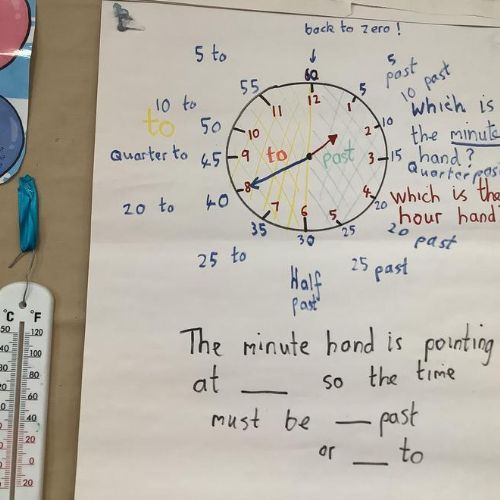 back to zero!
5 to
60
5 past
10 past
55
12
11
1
5
10 to
to
50
10
2
10
which is
the minute
hand?
Quarter to
45
9
to
past
3
15
Quarter past
40
8
4
20
which is the
hour hand
20 to
7
6
5
35
30
25
20 past
25 to
Half
past
25 past
The minute hand is pointing
at ___ so the time
must be __ past
or __ to
°C °F
50 120
40 100
30 80
20 60
10 40
0 20
10 0
20 20